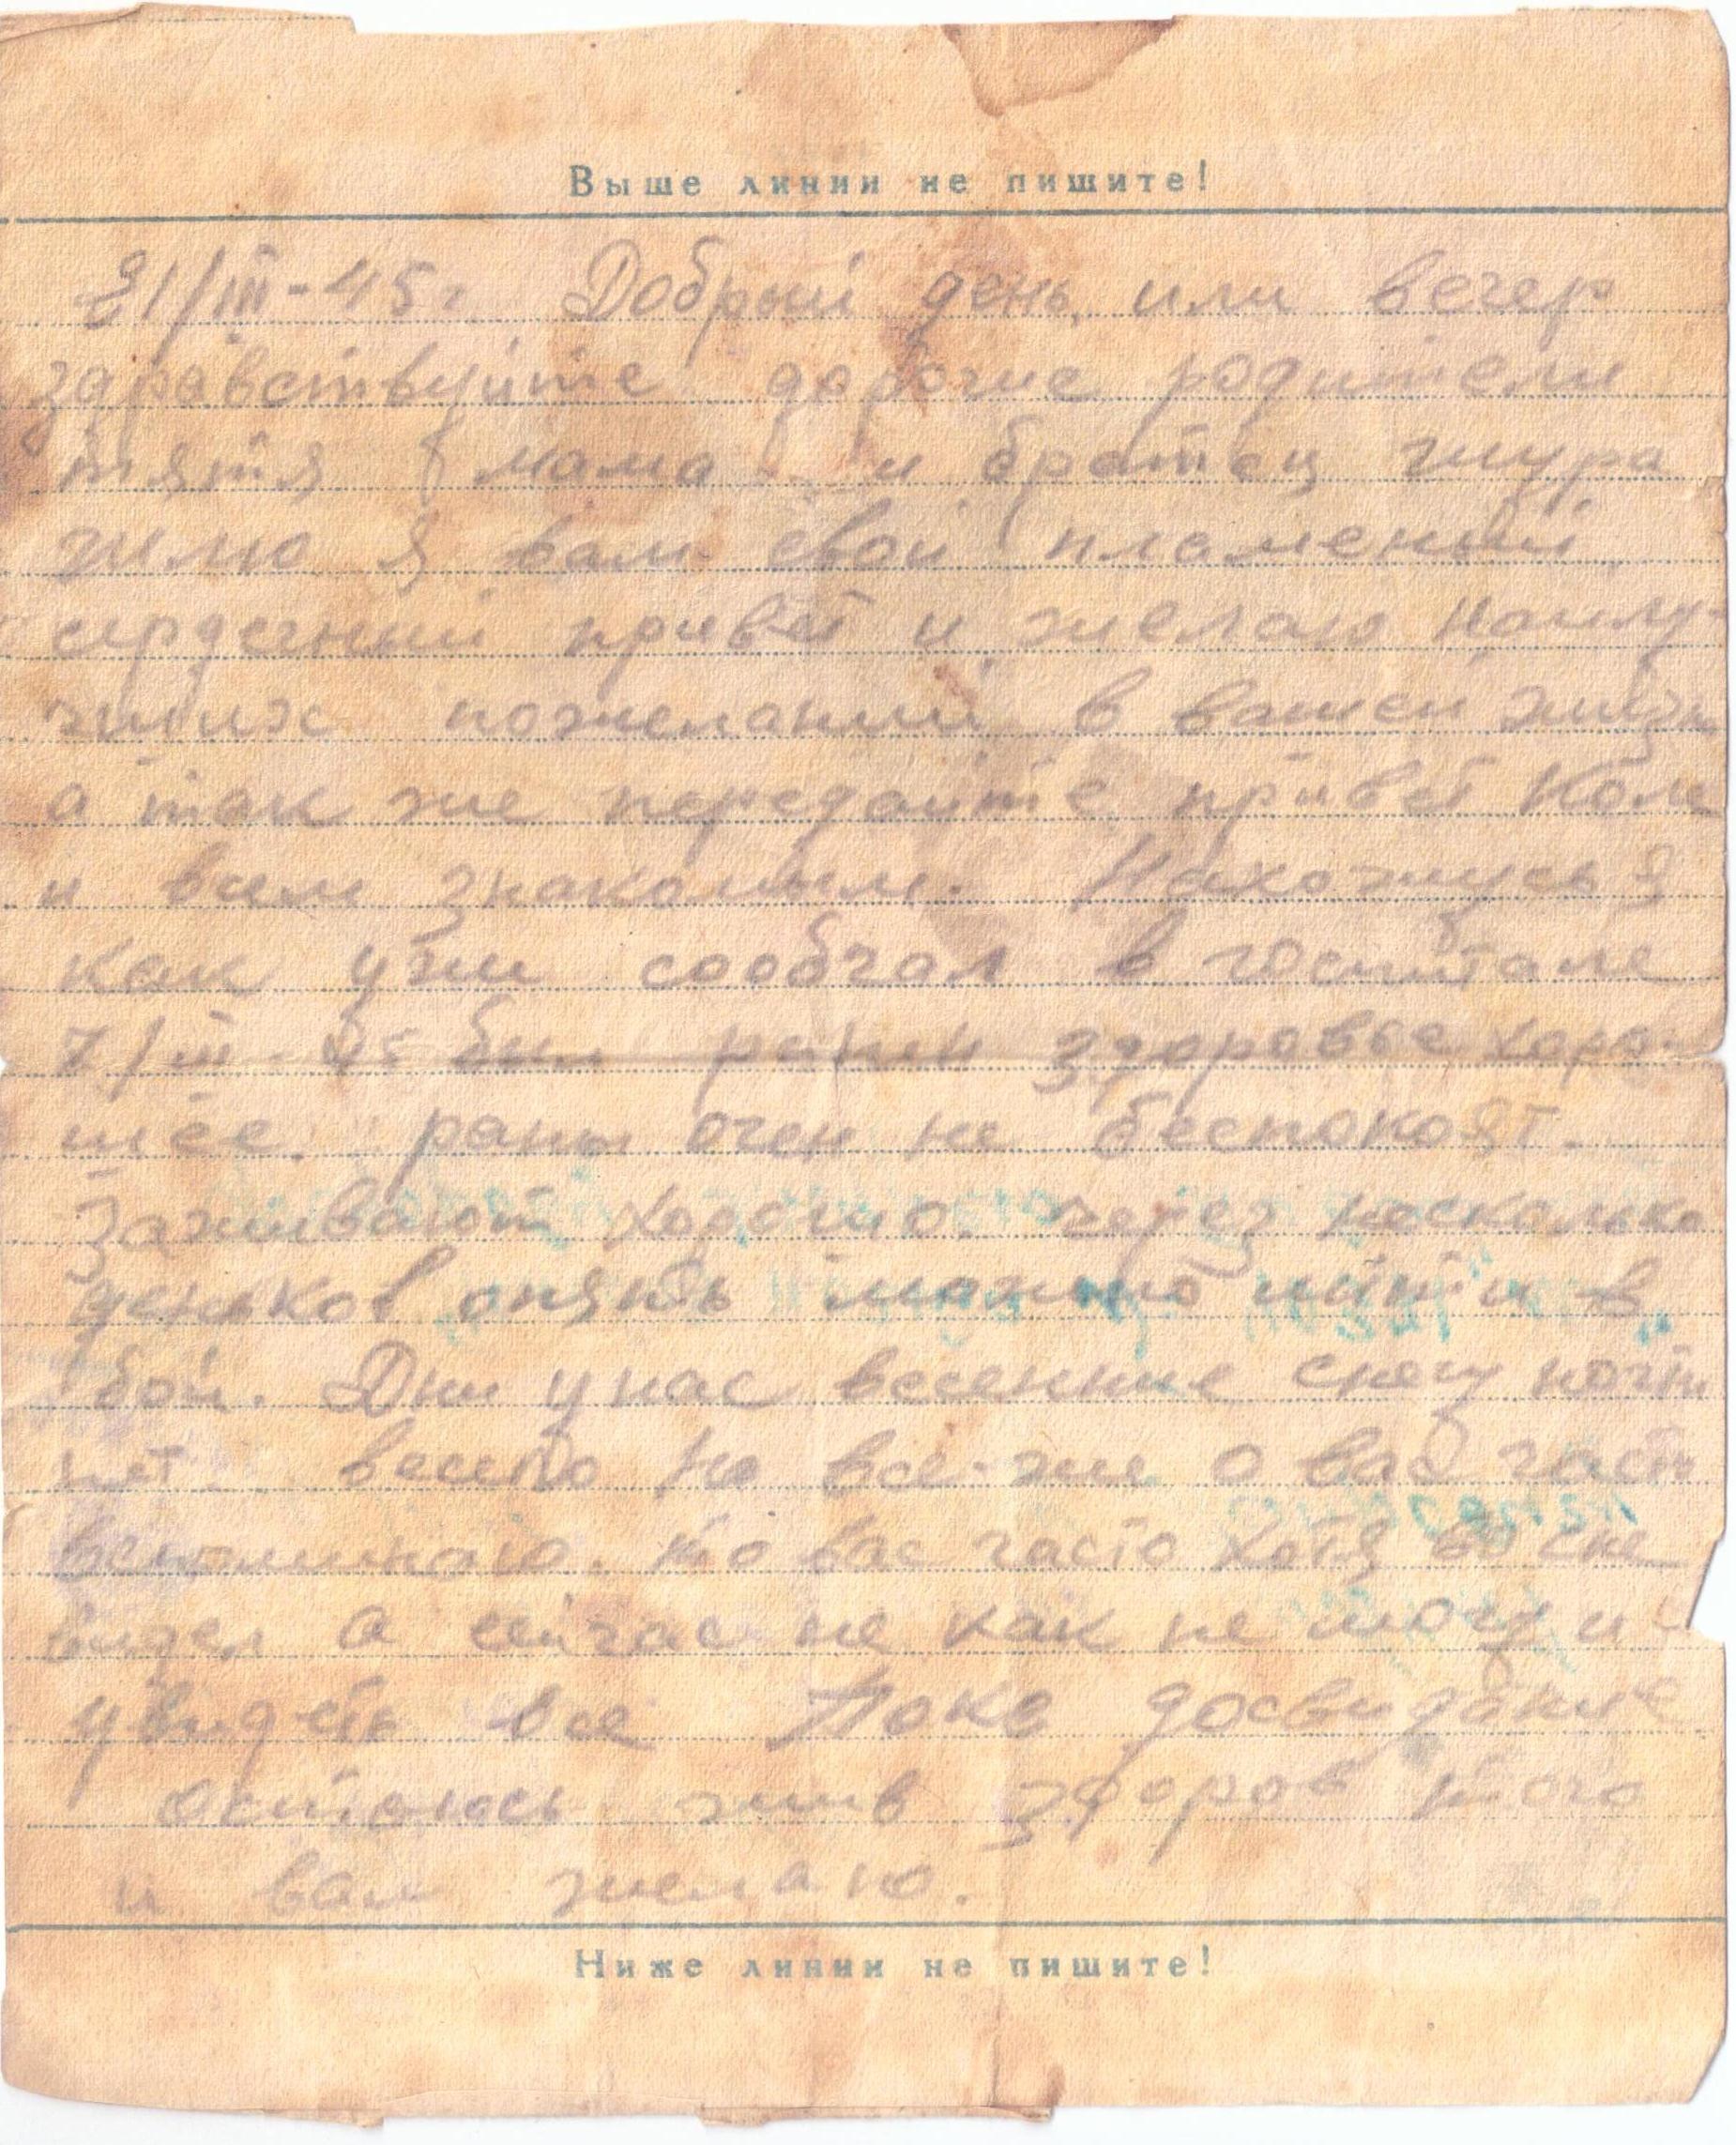 Выше линии не пишите!
21/III-45г Добрый день, или вечер
здравствуйте дорогие родители
тятя мама и братец шура
шлю я вам свой пламеный
сердечный привет и желаю наилу-
чших пожеланий в вашей жизни
а так же передайте привет Коле
и всем знакомым. Нахожусь я
как уже сообчал в госпитале
7/III-45 был ранен здоровье хоро-
шее. раны очен не беспокоят.
Заживают хорошо. через несколько
деньков опять можно итти в
бой. Дни у нас весенние снегу почти
нет. весело но все-же о вас часто
вспоминаю. то вас часто хотя во сне
видел а сейчас не как не могу и
увидеть все Пока досвидание
остаюсь жив здоров того
и вам желаю.
Ниже линии не пишите!